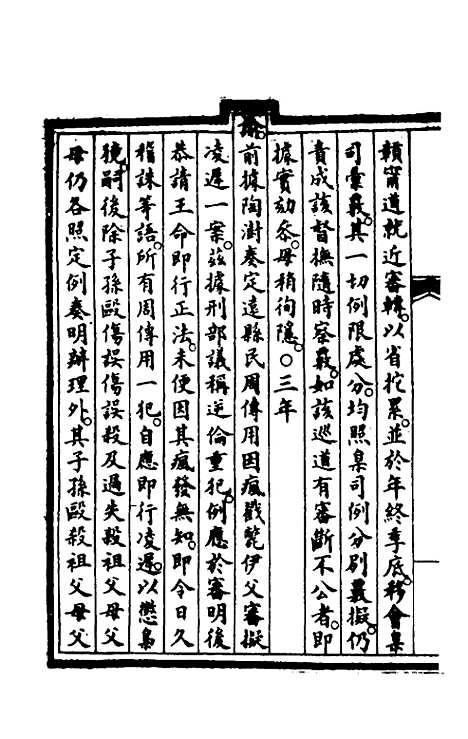 贛甯道就近審轉。以省拕累。並於年終季底。移會臬
司彙覈。其一切例限處分。均照臬司例分別覈擬。仍
責成該督撫隨時察覈。如該巡道有審斷不公者。即
據實劾叅。毋稍徇隱。○三年
諭。前據陶澍奏定遠縣民周傳用因瘋戳斃伊父審擬
凌遲一案。茲據刑部議稱逆倫重犯。例應於審明後
恭請王命即行正法。未便因其瘋發無知。即令日久
稽誅等語。所有周傳用一犯。自應即行凌遲。以懲梟
獍。嗣後除子孫毆傷誤傷誤殺及過失殺祖父母父
母仍各照定例奏明辦理外。其子孫毆殺祖父母父